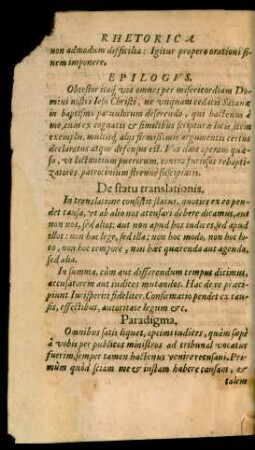 RHETORICA
non admodum difficilia: Igitur propero orationi fi-
nem imponere.
EPILOGVS.
Obtestor itaq; vos omnes per misericordiam Do-
mini nostri Iesu Christi, ne vnquam cedatis Satanæ
in baptismo paruulorum deserendo, qui hactenus à
me, cum ex cognatis & similibus scripturæ locis, item
exemplis, multisq́; alijs firmissimis argumentis certus
declaratus atque defensus est. Vos date operam quæ-
so, vt lactantium puerorum, contra furiosos rebapti-
zatores patrocinium strenuè suscipiatis.
De statu translationis.
In translatione consistit status, quoties ex eo pen-
det causa, vt ab alio nos accusari debere dicamus, aut
non nos, sed alios: aut non apud hos iudices, sed apud
illos: non hac lege, sed illa: non hoc modo, non hoc lo-
co, non hoc tempore, non hæc quærenda aut agenda,
sed alia.
In summa, cùm aut differendum tempus dicimus,
accusatorem aut iudices mutandos. Hac de re præci-
piunt Iurisperiti fideliter. Consumatio pendet ex cau-
sis, effectibus, autoritate legum &c.
Paradigma.
Omnibus satis liquet, optimi iudices, quàm sæpè
à vobis per publicos ministros ad tribunal vocatus
fuerim, semper tamen hactenus venire recusaui. Pri-
mùm quòd sciam me & iustam habere causam, &
talem